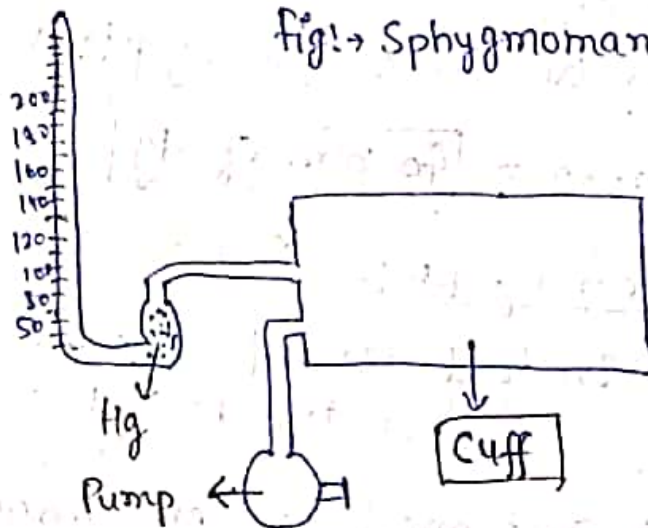 fig:→ Sphygmoman
200
180
160
140
120
100
80
50
Hg
Pump
Cuff